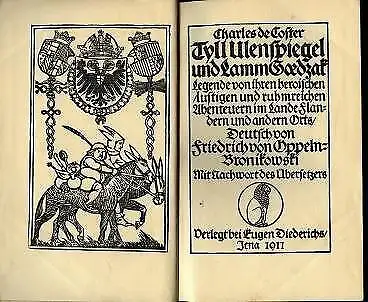 Charles de Coster
Tyll Ulenspiegel
und Lamm Goedzak
Legende von ihren heroischen
lustigen und ruhmreichen
Abenteuern im Lande Flan-
dern und andern Orts/
Deutsch von
Friedrich von Oppeln-
Bronikowski
Mit Nachwort des Übersetzers
Verlegt bei Eugen Diederichs/
Jena 1911